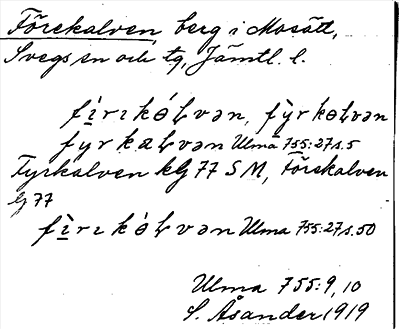 Förekalven berg i Mosätt,
Svegs sn och tg, Jämtl. l.
fìrıkɵ́Lvən, fỳrkɵLvən
fyrkaLvən Ulma 755:27 s. 5
Fyrkalven kbg 77 S M, Förekalven
bg 77
fìrıkɵ́Lvən Ulma 755:27 s. 50
Ulma 755:9, 10
S. Åsander 1919